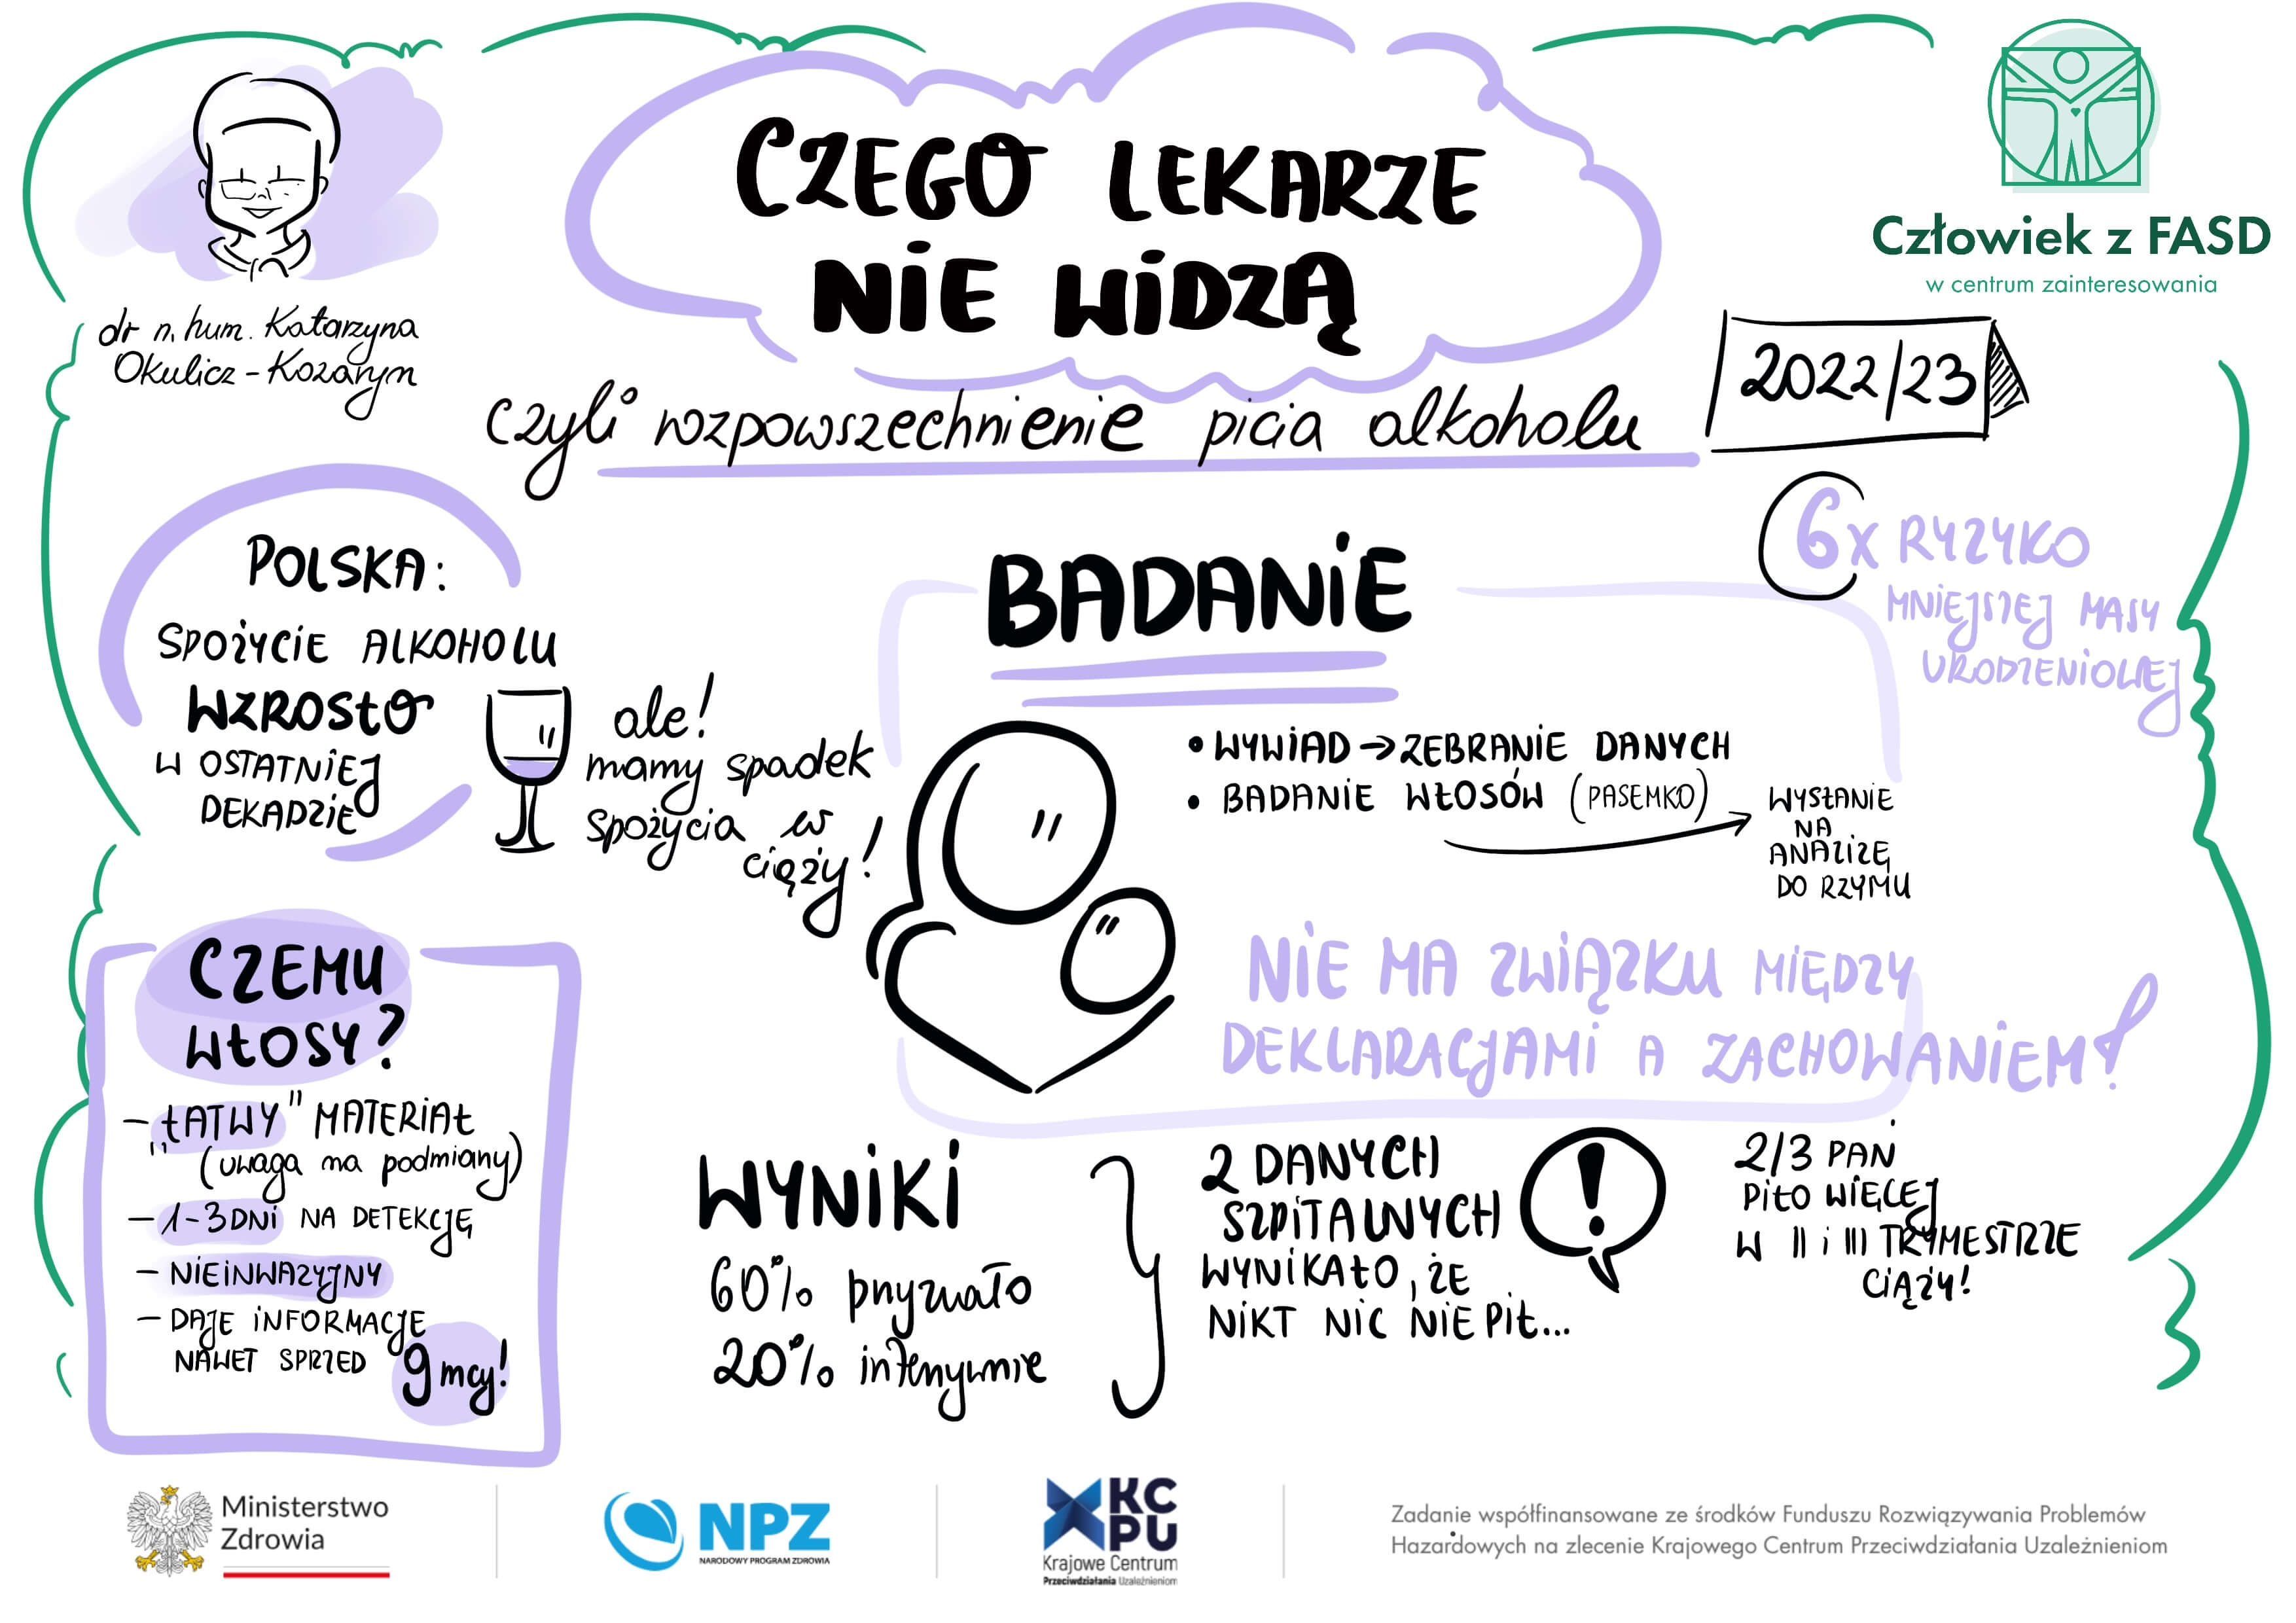 CZEGO LEKARZE
NIE WIDZĄ
czyli rozpowszechnienie picia alkoholu
2022/23
dr n. hum. Katarzyna
Okulicz-Kozaryn
Człowiek z FASD
w centrum zainteresowania
POLSKA:
SPOŻYCIE ALKOHOLU
WZROSŁO
W OSTATNIEJ
DEKADZIE
ale!
mamy spadek
spożycia w
ciąży!
BADANIE
• WYWIAD → ZEBRANIE DANYCH
• BADANIE WŁOSÓW (PASEMKO)
WYSŁANIE
NA
ANALIZĘ
DO RZYMU
6x RYZYKO
MNIEJSZEJ MASY
URODZENIOWEJ
NIE MA ZWIĄZKU MIĘDZY
DEKLARACJAMI A ZACHOWANIEM!
CZEMU
WŁOSY?
- "ŁATWY" MATERIAŁ
(uwaga na podmiany)
- 1-3 DNI NA DETEKCJĘ
- NIEINWAZYJNY
- DAJE INFORMACJE
NAWET SPRZED 9 mcy!
WYNIKI
60% przyznało
20% intensywnie
Z DANYCH
SZPITALNYCH
WYNIKAŁO, ŻE
NIKT NIC NIE PIŁ...
!
2/3 PAŃ
PIŁO WIĘCEJ
W II i III TRYMESTRZE
CIĄŻY!
Ministerstwo
Zdrowia
NPZ
NARODOWY PROGRAM ZDROWIA
KC
PU
Krajowe Centrum
Przeciwdziałania Uzależnieniom
Zadanie współfinansowane ze środków Funduszu Rozwiązywania Problemów
Hazardowych na zlecenie Krajowego Centrum Przeciwdziałania Uzależnieniom